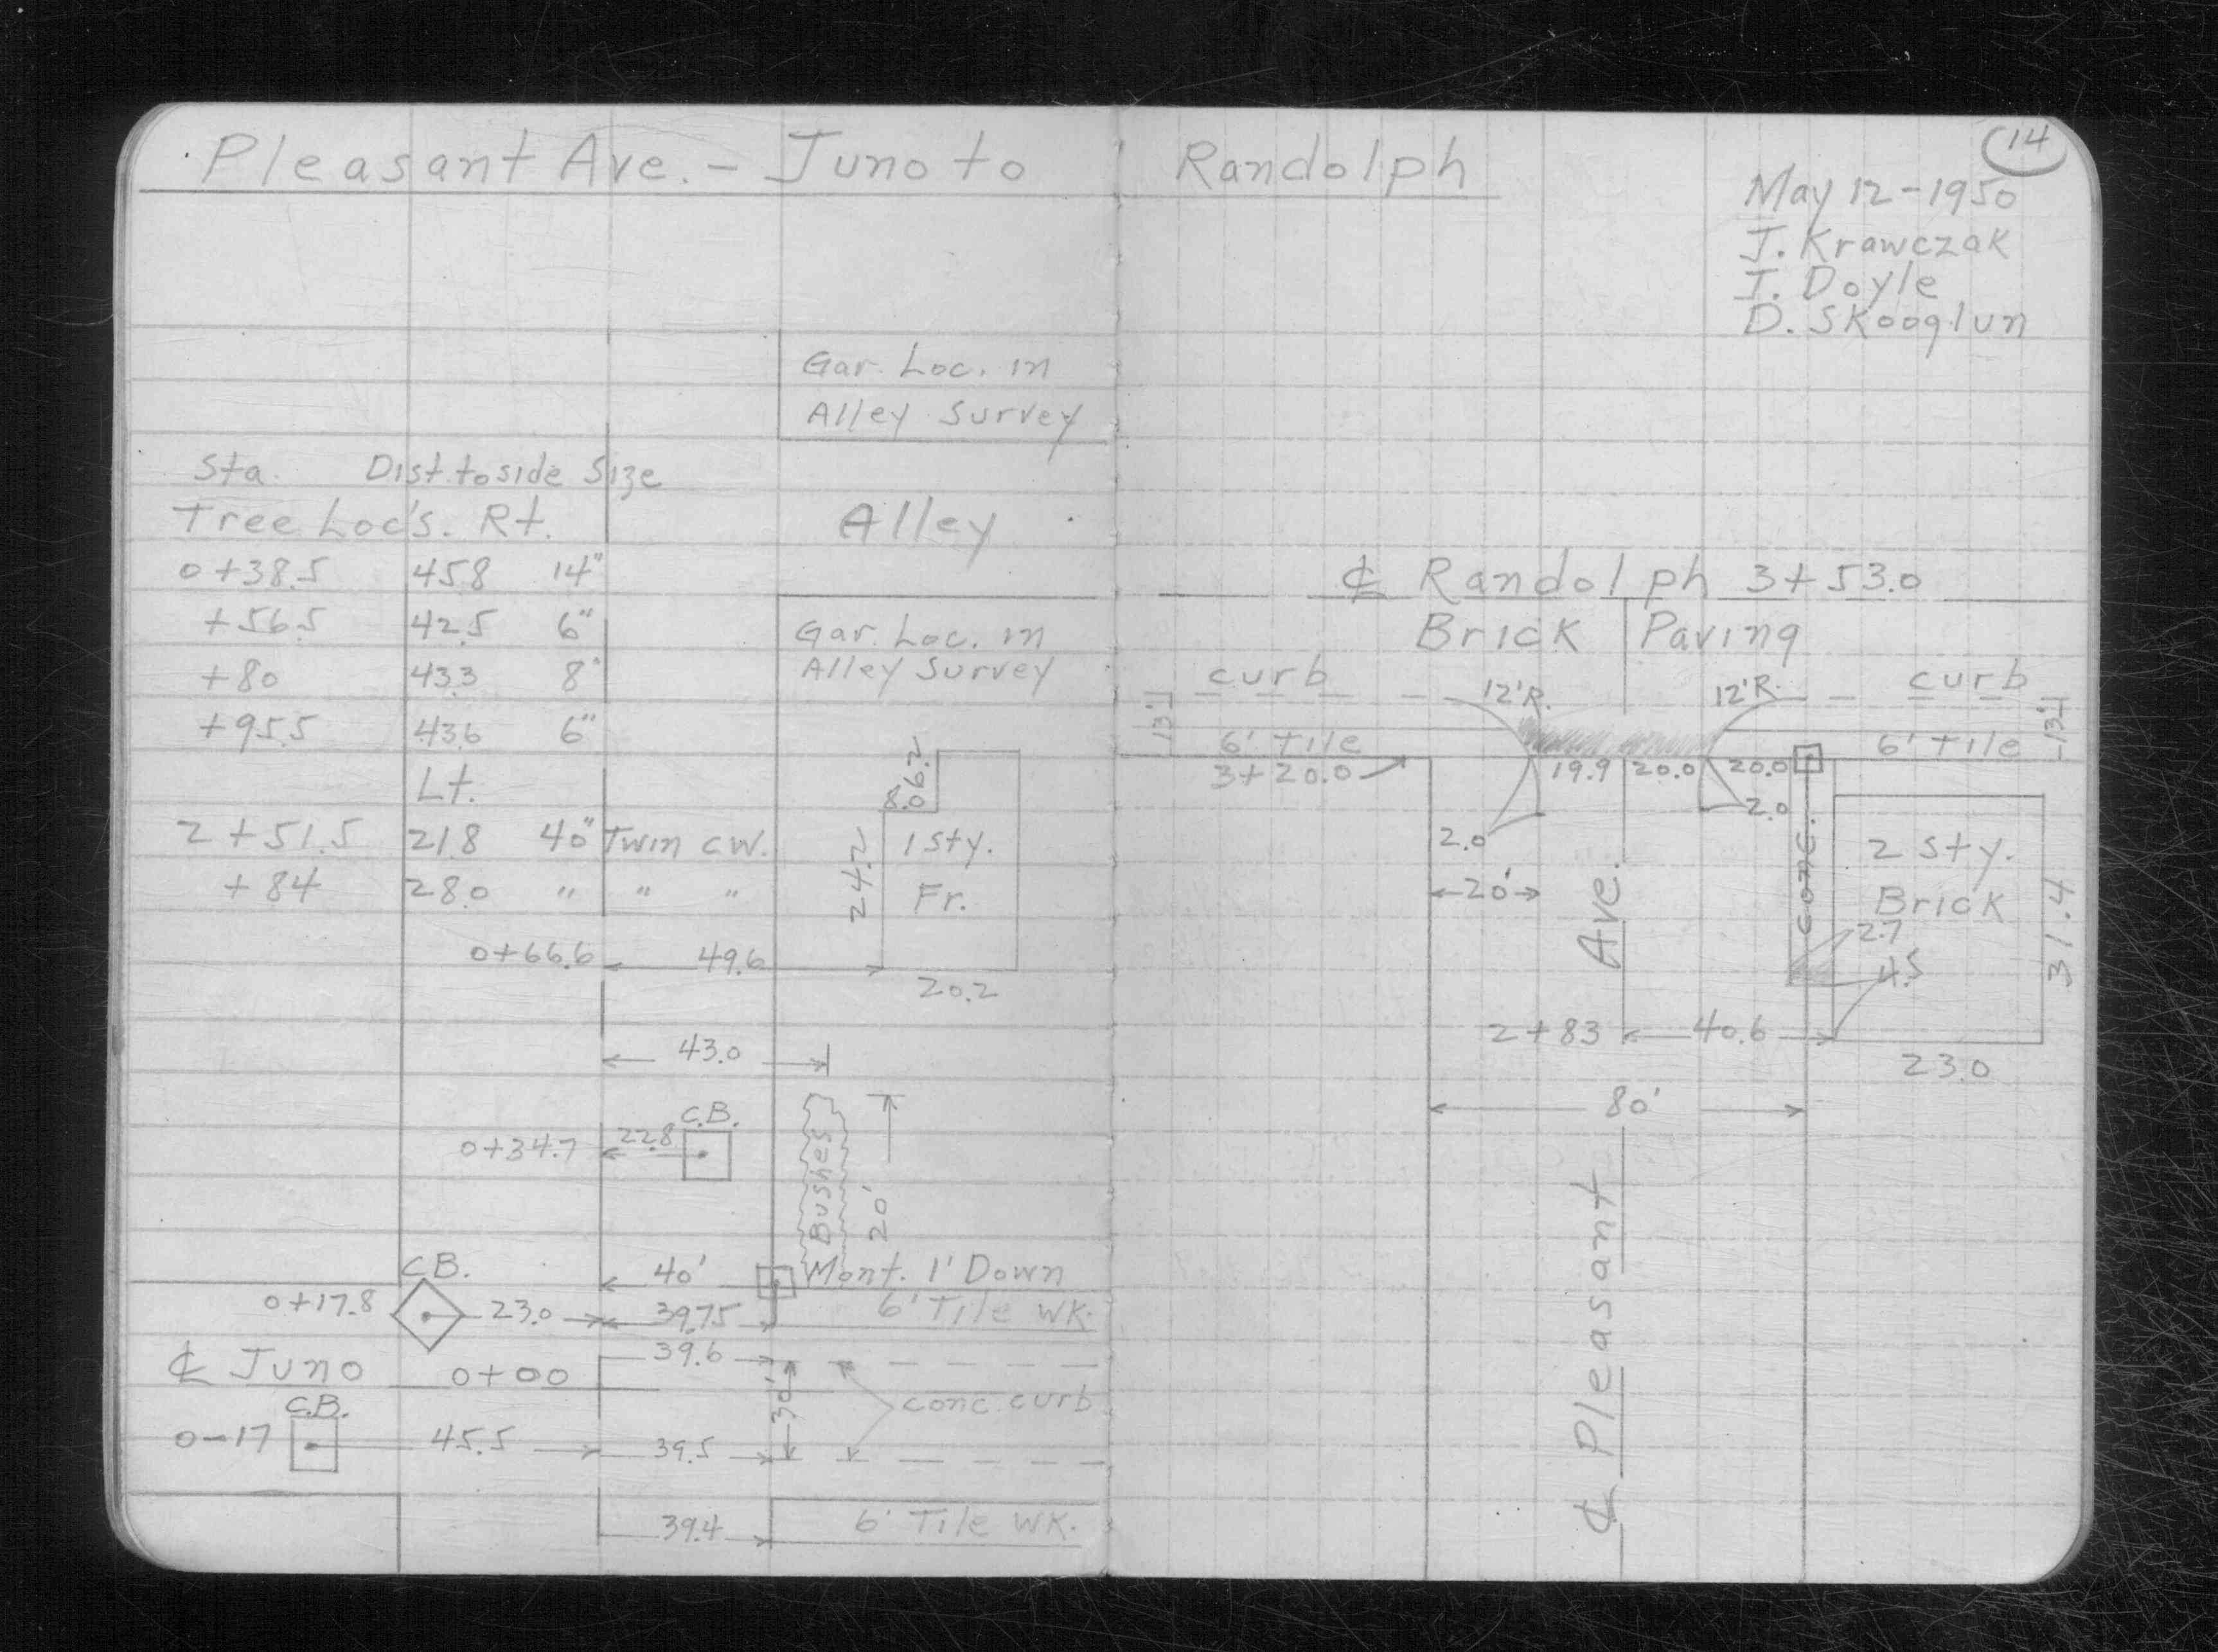 Pleasant Ave. - Juno to Randolph
14
May 12-1950
J. Krawczak
I. Doyle
D. Skooglun
Gar. Loc. in
Alley Survey
Sta. Dist. to side Size
Tree Loc's. Rt.
Alley
0+38.5 45.8 14"
+56.5 42.5 6"
+80 43.3 8"
+95.5 43.6 6"
Lt.
2+51.5 21.8 40" Twin CW.
+84 28.0 " " "
Gar. Loc. in
Alley Survey
6.2
8.0
24.2
1 sty.
Fr.
0+66.6 49.6
20.2
43.0
C.B.
0+34.7 22.8
Bushes
20'
C.B.
40' Mont. 1' Down
0+17.8 23.0 39.75 6' Tile WK.
39.6
℄ Juno 0+00
30'
conc. curb
C.B.
0-17 45.5 39.5
39.4 6' Tile WK.
℄ Randolph 3+53.0
Brick Paving
curb 12'R. 12'R. curb
13' 13'
6' Tile 6' Tile
3+20.0 19.9 20.0 20.0
2.0 2.0
20'
conc.
2 sty.
Brick
31.4
2.7
4.5
2+83 40.6
23.0
80'
℄ Pleasant Ave.